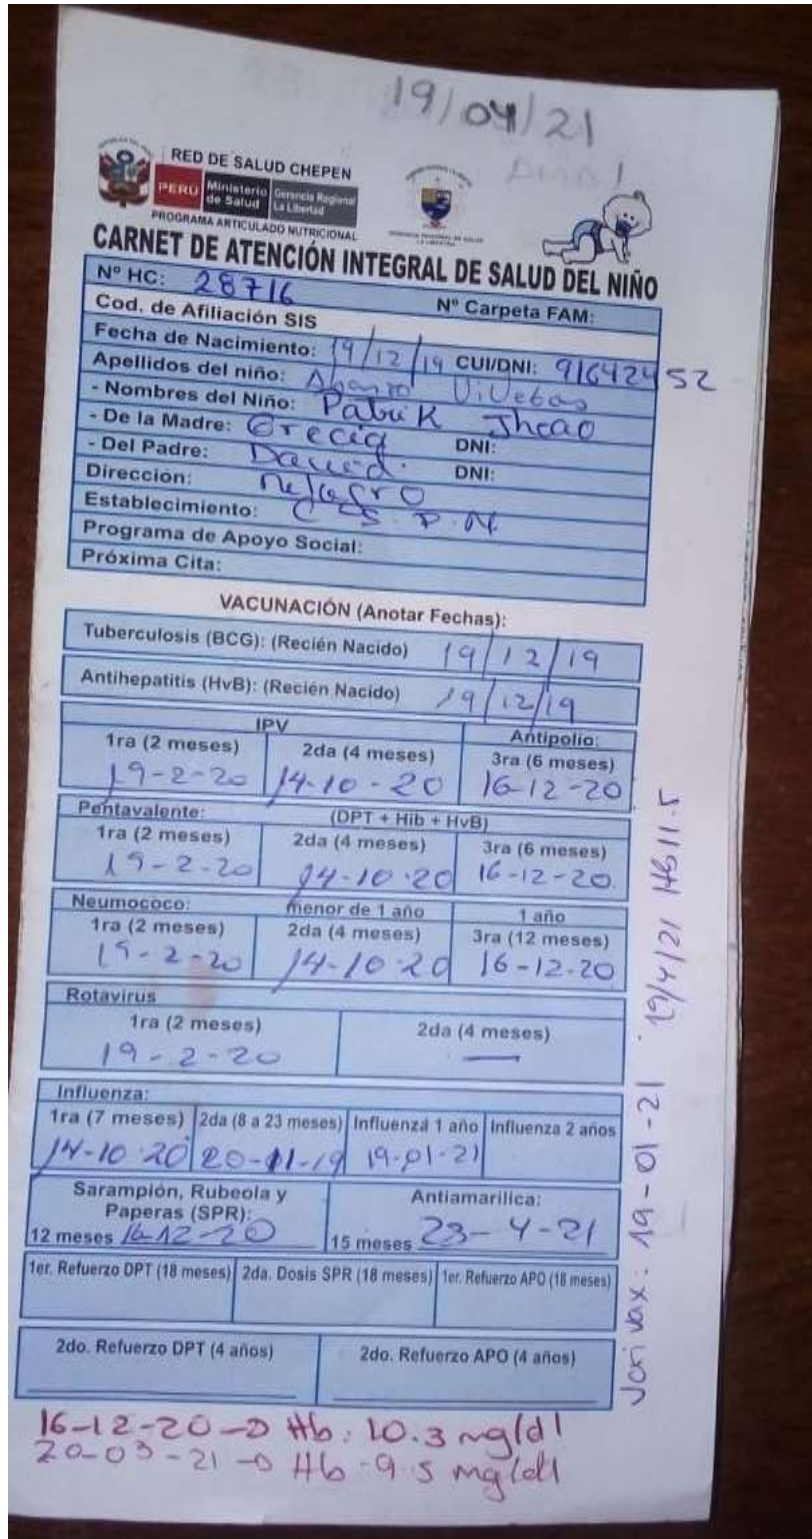 19/04/21
RED DE SALUD CHEPEN
PERÚ Ministerio de Salud Gerencia Regional La Libertad
PROGRAMA ARTICULADO NUTRICIONAL
CARNET DE ATENCIÓN INTEGRAL DE SALUD DEL NIÑO
Nº HC: 28716 Nº Carpeta FAM:
Cod. de Afiliación SIS
Fecha de Nacimiento: 19/12/19 CUI/DNI: 91642452
Apellidos del niño:
- Nombres del Niño: Patrik Jhoao
- De la Madre: Grecia DNI:
- Del Padre: David. DNI:
Dirección:
Establecimiento:
Programa de Apoyo Social:
Próxima Cita:
VACUNACIÓN (Anotar Fechas):
Tuberculosis (BCG): (Recién Nacido) 19/12/19
Antihepatitis (HvB): (Recién Nacido) 19/12/19
IPV Antipolio:
1ra (2 meses) 2da (4 meses) 3ra (6 meses)
19-2-20 14-10-20 16-12-20
Pentavalente: (DPT + Hib + HvB)
1ra (2 meses) 2da (4 meses) 3ra (6 meses)
19-2-20 14-10-20 16-12-20
Neumococo: menor de 1 año 1 año
1ra (2 meses) 2da (4 meses) 3ra (12 meses)
19-2-20 14-10-20 16-12-20
Rotavirus
1ra (2 meses) 2da (4 meses)
19-2-20 —
Influenza:
1ra (7 meses) 2da (8 a 23 meses) Influenza 1 año Influenza 2 años
14-10-20 20-11-19 19-01-21
Sarampión, Rubeola y Paperas (SPR): Antiamarilica:
12 meses 16-12-20 15 meses 23-4-21
1er. Refuerzo DPT (18 meses) 2da. Dosis SPR (18 meses) 1er. Refuerzo APO (18 meses)
2do. Refuerzo DPT (4 años) 2do. Refuerzo APO (4 años)
16-12-20 → Hb: 10.3 mg/dl
20-03-21 → Hb - 9.5 mg/dl
vax: 19-01-21 19/4/21 Hb 11.5